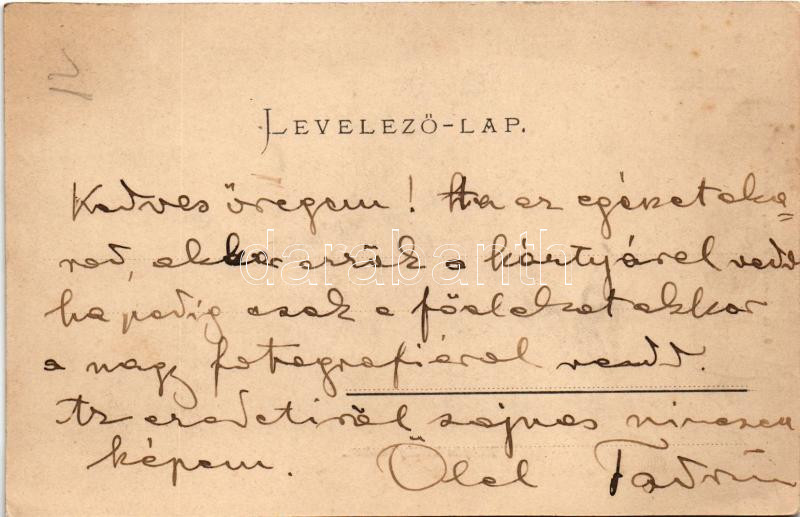 12
LEVELEZŐ-LAP.
Kedves öregem! Ha az egészet aka=
rod, akkor a kártyáról vedd
ha pedig csak a főalakot akkor
a nagy fotografiáról vedd.
Az eredetiről sajnos nincsen
képem. Ölel Fadrusz
darabanth